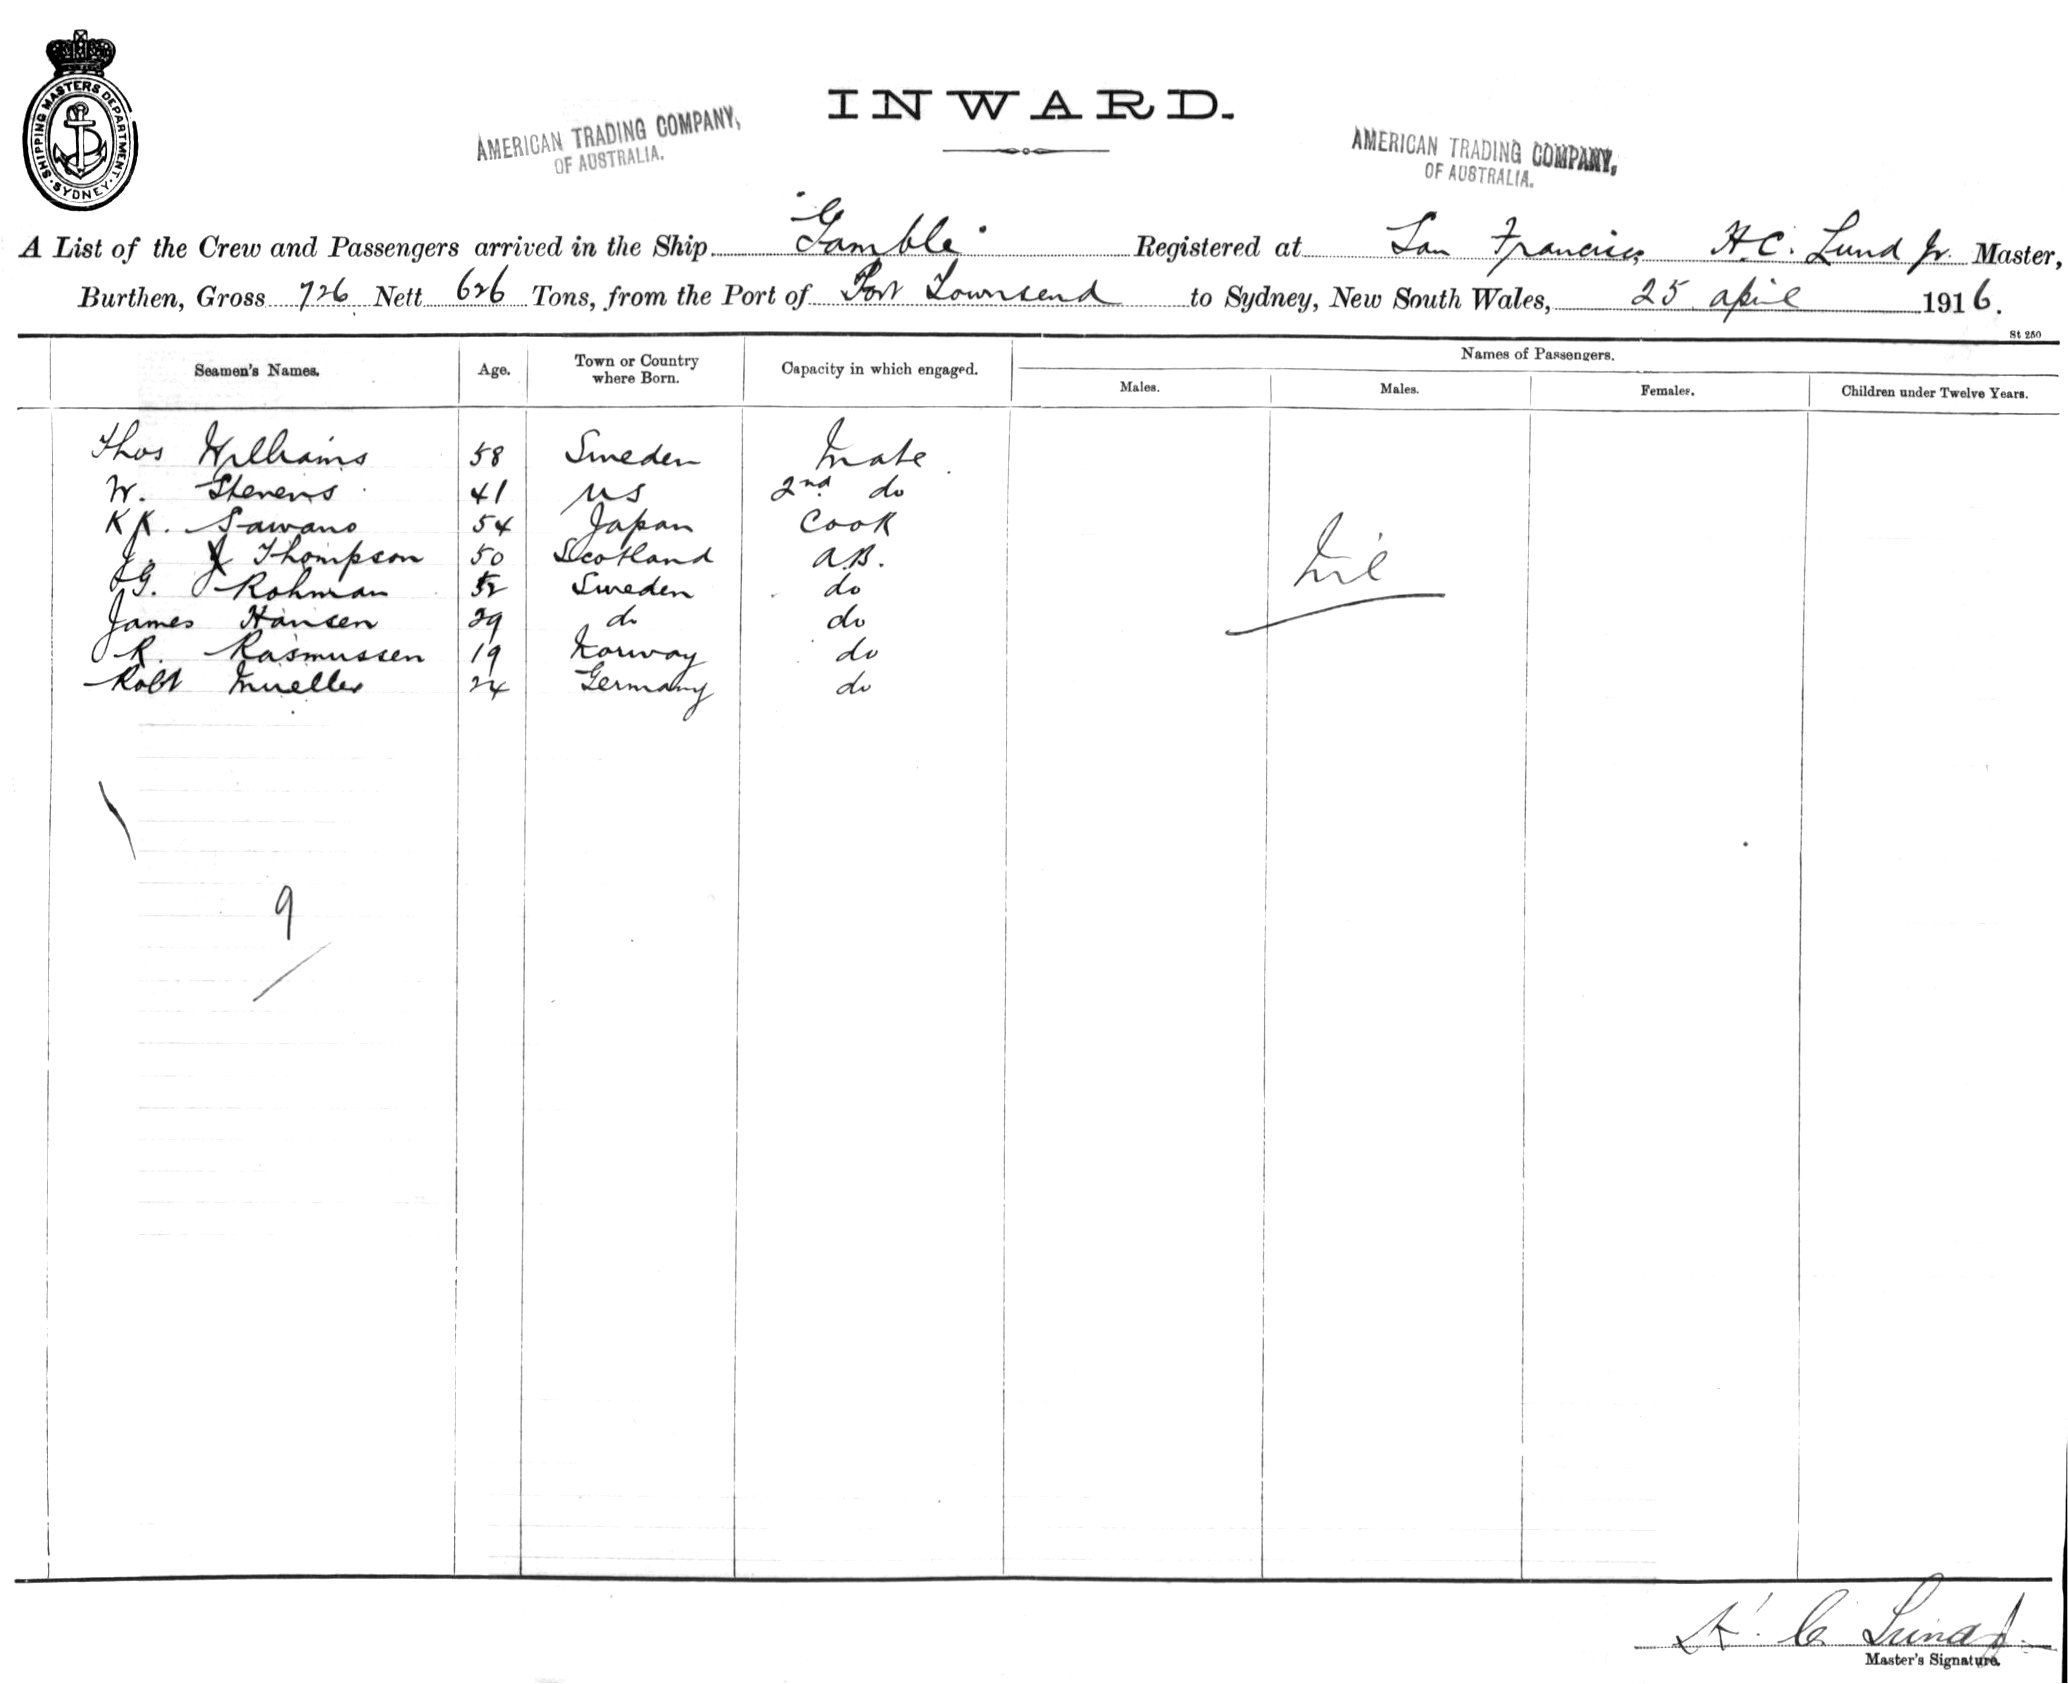 SHIPPING MASTERS DEPARTMENT
SYDNEY
INWARD.
AMERICAN TRADING COMPANY,
OF AUSTRALIA.
AMERICAN TRADING COMPANY,
OF AUSTRALIA.
A List of the Crew and Passengers arrived in the Ship "Gamble" Registered at San Francisco, H.C. Lund Jr. Master,
Burthen, Gross 726 Nett 626 Tons, from the Port of Port Townsend to Sydney, New South Wales, 25 april 1916.
St 250
Seamen's Names. Age. Town or Country where Born. Capacity in which engaged. Names of Passengers.
Males. Males. Females. Children under Twelve Years.
Thos Williams 58 Sweden Mate
W. Stevens 41 US 2nd do
K K. Sawano 54 Japan Cook
J. Thompson 50 Scotland A.B.
G. Rohman 52 Sweden do
James Hansen 29 do do
R. Rasmussen 19 Norway do
Robt Mueller 24 Germany do
Nil
9
H. C. Lund Jr
Master's Signature.